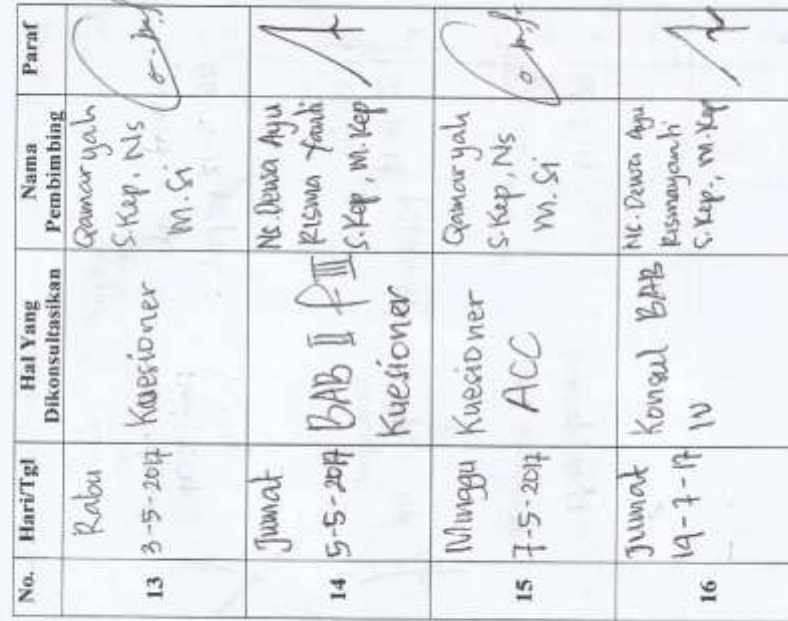 No. Hari/Tgl Hal Yang Dikonsultasikan Nama Pembimbing Paraf
13
Rabu
3-5-2017
Kuesioner
Qamaryah
S.Kep, Ns
M.Si
14
Jumat
5-5-2017
BAB II & III
Kuesioner
Ns. Dewa Ayu
Risma Yanti
S.Kep, M.Kep
15
Minggu
7-5-2017
Kuesioner
ACC
Qamaryah
S.Kep, Ns
M.Si
16
Jumat
14-7-17
Konsul BAB
IV
Ns. Dewa Ayu
Rismayanti
S.Kep., M.Kep